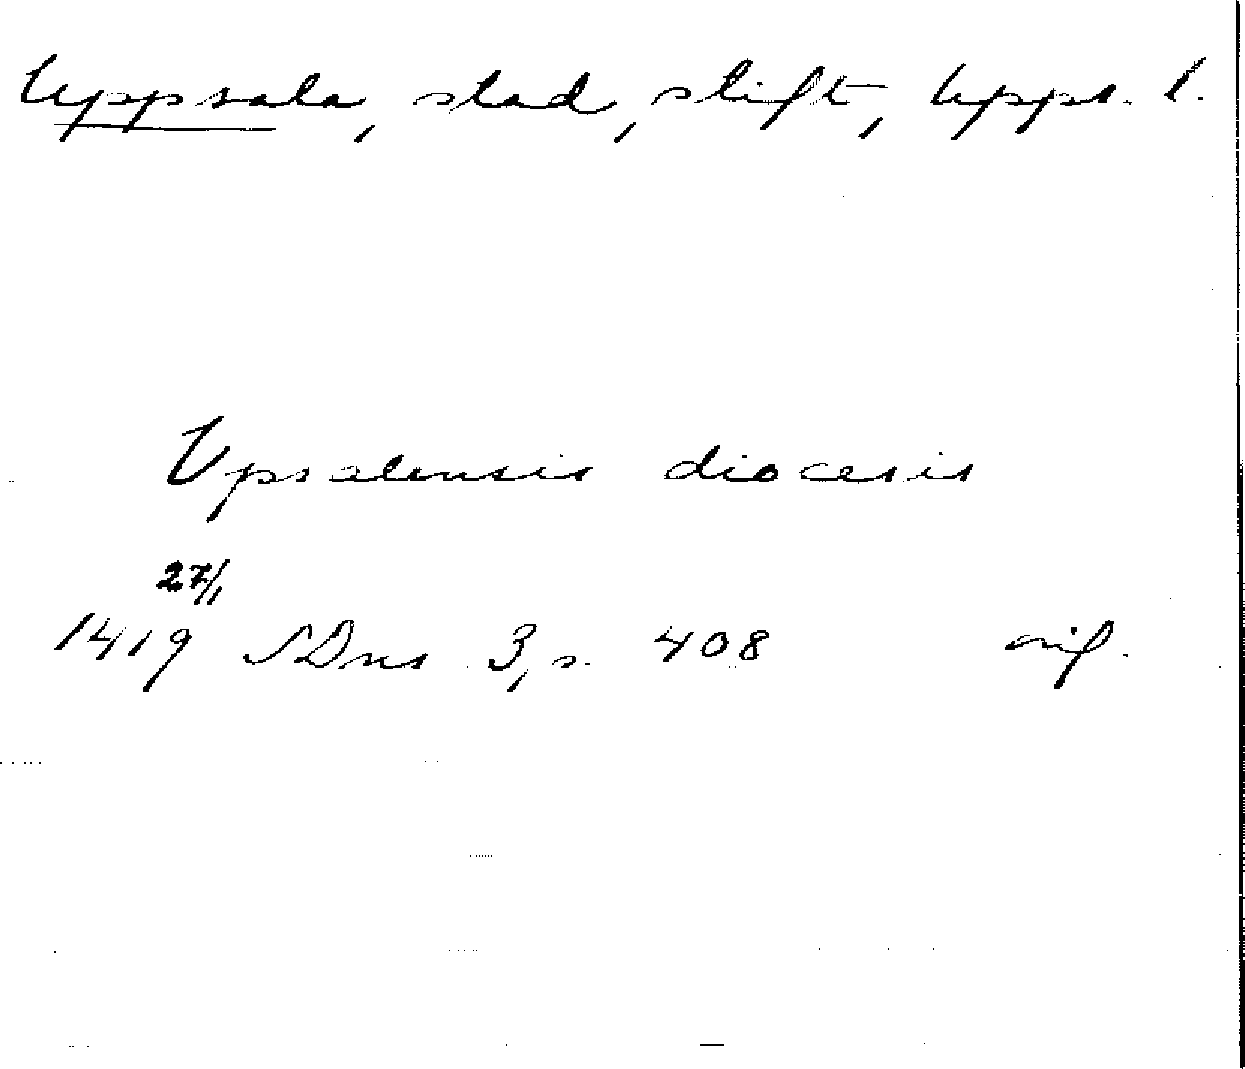 Uppsala, stad, stift, Upps. l.
Upsalensis diocesis
27/1
1419 SDns 3, s. 408 orig.